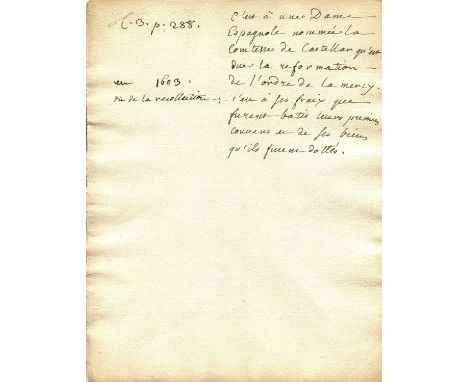 H. 3. p. 288.
en 1603
ou de la recollection
C'est à une Dame
Espagnole nommée la
Comtesse de Castellar qu'est
due la reformation
de l'ordre de la mercy.
c'en à ses fraix que
furent batis leurs premiers
couvens et de ses biens
qu'ils furent dottés.